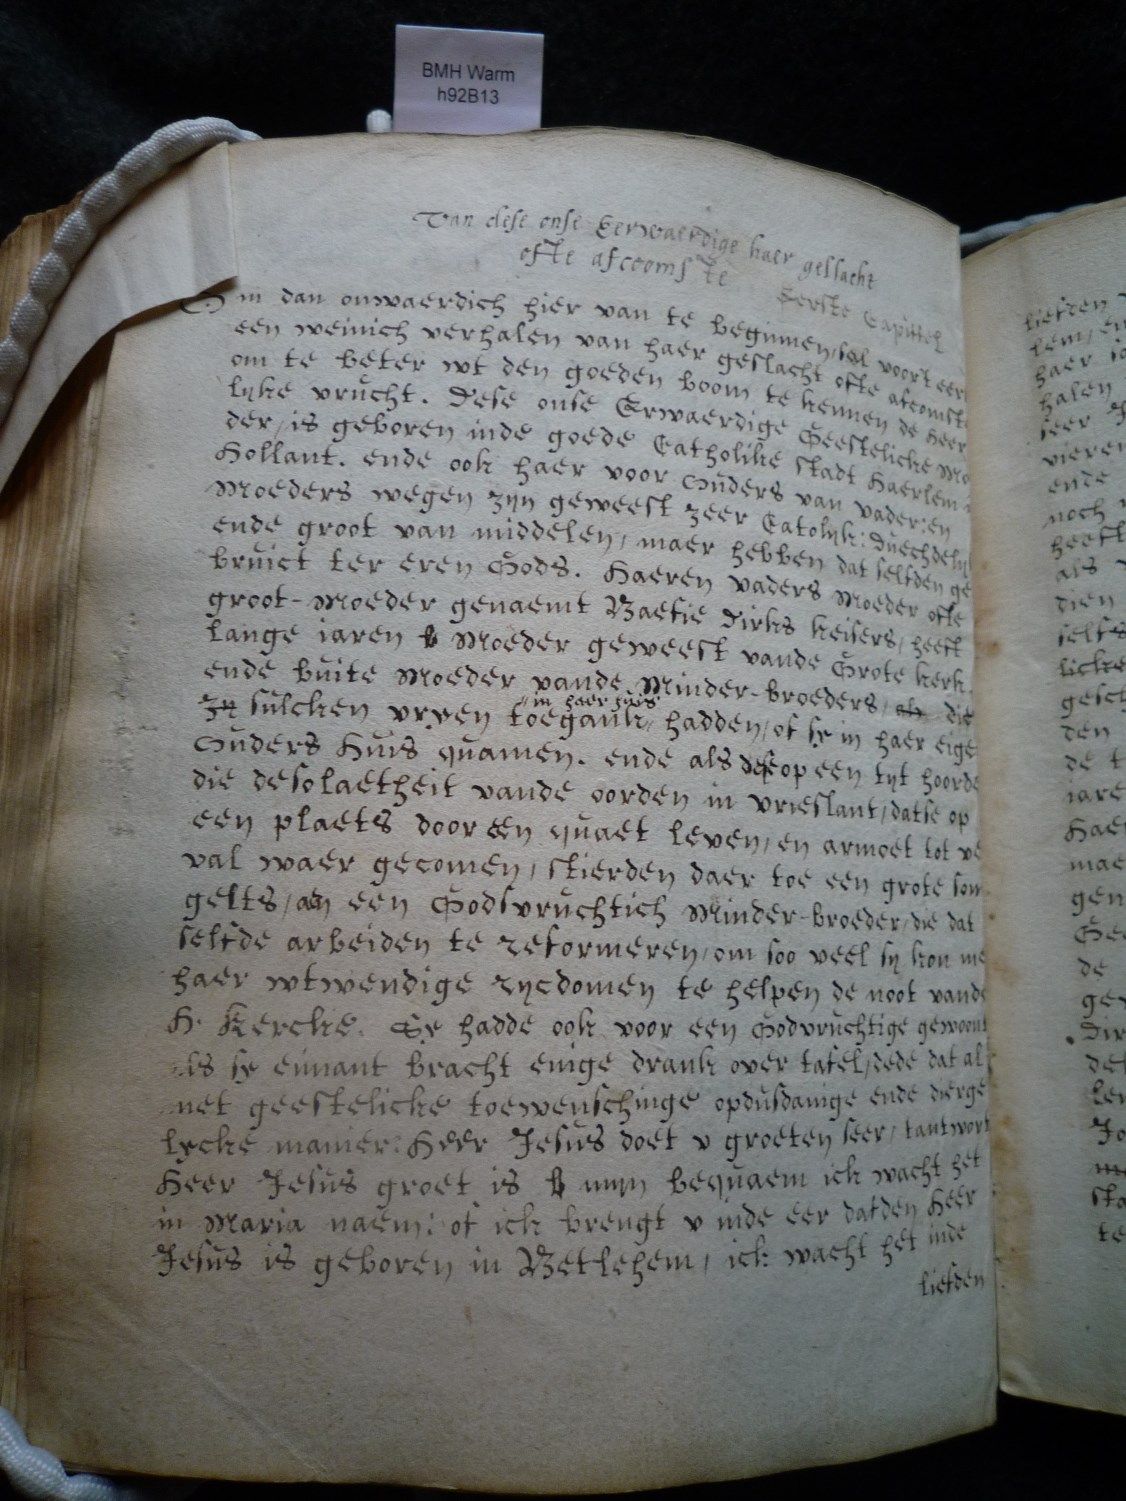 BMH Warm
h92B13
Van dese onse Eerwaerdige haer geslacht
ofte afcoomste
Eerste Capittel
Om dan onwaerdich hier van te beginnen, sal voort eer
een weinich verhalen van haer geslacht ofte afcomst
om te beter wt den goeden boom te kennen de heer
lijke vrucht. Dese onse Eerwaerdige Geestelicke Mo
der, is geboren inde goede Catholike stadt Haerlem
Hollant. ende ook haer voor ouders van vader: en
Moeders wegen zijn geweest zeer Catolijk: Duechdelyk
ende groot van middelen, maer hebben dat selfden ge
bruict ter eren Gods. Haeren vaders Moeder ofte
groot-Moeder genaemt Baefie Dirks keisers, heeft
lange iaren Moeder geweest vande Grote kerk.
ende buite Moeder vande Minder-broeders, die
in haer huis
sulcken vryen toegank, hadden, of sy in haer eige
Ouders Huis quamen. ende als dese op een tyt hoorde
die desolaetheit vande oorden in vrieslant, datse op
een plaets door een quaet leven, en armoet tot ve
val waer gecomen, stierden daer toe een grote som
gelts, aen een Godsvruchtich Minder-broeder, die dat
selfde arbeiden te reformeren, om soo veel sy kon me
haer wtwendige rycdomen te helpen de noot vande
H. Kercke. Sy hadde ook voor een Godvruchtige gewoont
als sy eimant bracht enige drank over tafel, dede dat al
met geestelicke toewenschinge opdusdanige ende dierge
lycke manier: Heer Jesus doet v groeten seer, tantwort
Heer Jesus groet is mijn bequaem ick wacht het
in Maria naem: of ick brengt v inde eer datden Heer
Jesus is geboren in Betlehem, ick wacht het inde
liefden